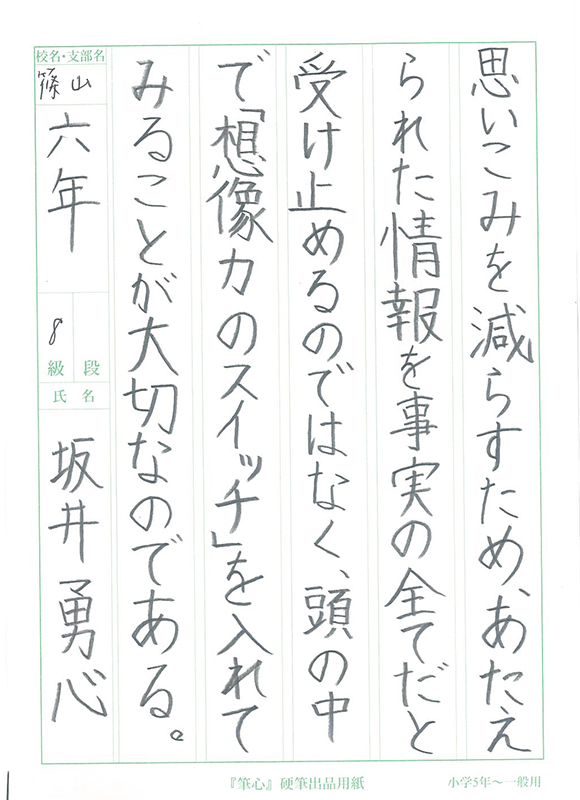 思いこみを減らすため、あたえ
られた情報を事実の全てだと
受け止めるのではなく、頭の中
で「想像力のスイッチ」を入れて
みることが大切なのである。
校名・支部名
篠山
六年
8
級 段
氏名
坂井勇心
『筆心』硬筆出品用紙
小学5年～一般用